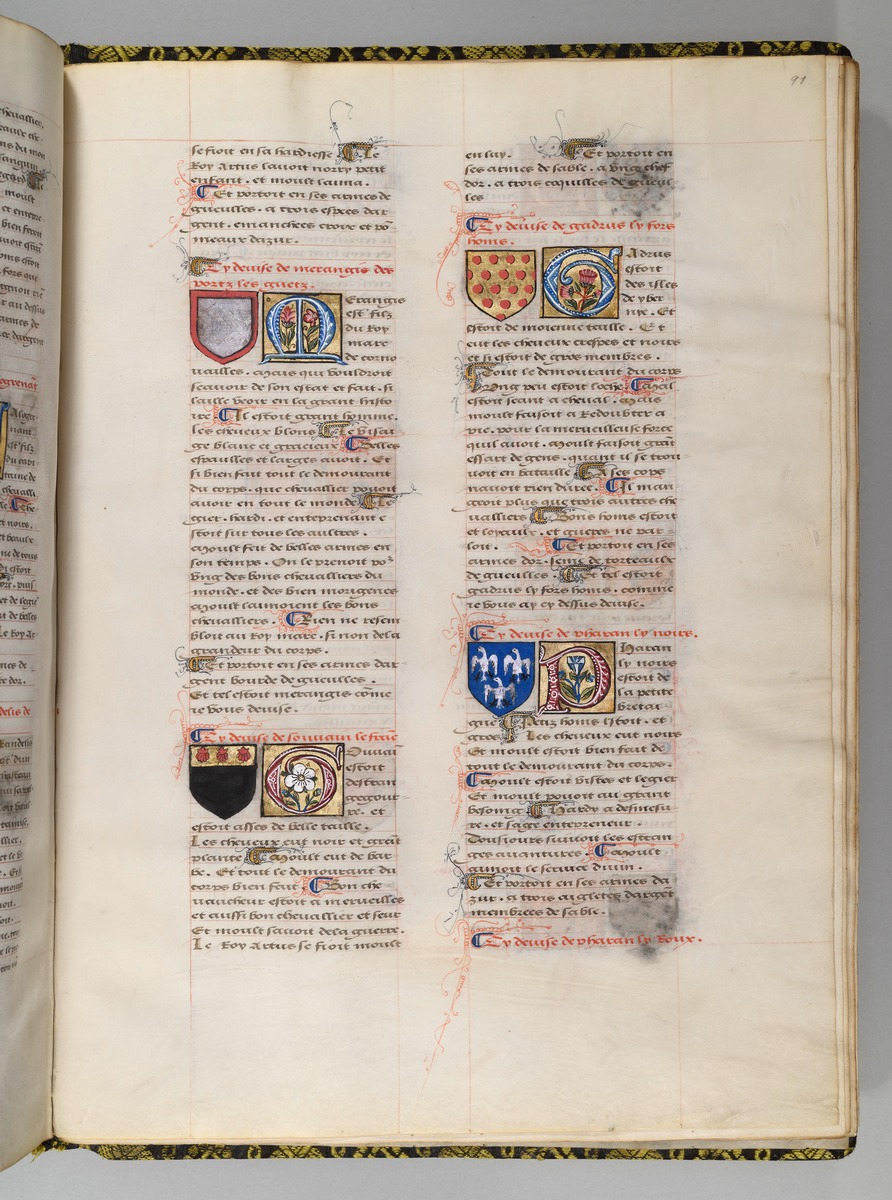 91
se fioit en sa hardiesse. Le
Roy Artus lauoit norry petit
enfant. et moult lauma.
Et portoit en ses armes de
gueulles. a trois espees dar
gent. emanchees croix et po
meaux dazur.
Cy deuise de merangis des
portz les guetz.
Merangis
est filz
du Roy
marc
de corno
uailles. Mais qui vouldroit
scauoir de son estat et fait. si
laille veoir en la grant histo
ire Il estoit grant homme.
les cheueux blons Le visai
ge blanc et gracieux Belles
espaulles et larges auoit. Et
si bien fait tout le demourant
du corps. que cheuallier pouoit
auoir en tout le monde Le
gier. hardi. et entreprenant e
stoit sur tous les aultres.
Moult feit de belles armes en
son temps. On le prenoit por
vng des bons cheualliers du
monde. et des bien morigenes
Moult laimoient les bons
cheualliers. Rien ne resem
bloit au Roy marc. si non de la
grandeur du corps.
Et portoit en ses armes dar
gent bourde de gueulles.
Et tel estoit merangis come
ie vous deuise.
Cy deuise de souuain le
Ouuain
estoit
destran
gegour
re. et
estoit asses de belle taille.
Les cheueux eut noir et grant
plante Moult eut de bar
be. Et tout le demourant du
corps bien fait Bon che
uaucheur estoit a merueilles
et aussi bon cheuallier et seur
Et moult sauoit de la guerre.
Le Roy Artus se fioit moult
en luy. Et portoit en
ses armes de sable. a vng chef
dor. a trois coquilles de gueul
les
Cy deuise de gadrus ly fors
homs.
Gadrus
estoit
des isles
de yber
nye. Et
estoit de moienne taille. Et
eut les cheueux crespes et noirs
et si estoit de gros membres.
Tout le demourant du corps
Vng peu estoit loche. Mal
estoit seant a cheual. Mais
moult faisoit a Redoubter a
pie. pour la merueilleuse force
quil auoit. Moult faisoit grant
essart de gens. quant il se trou
uoit en bataille A ses cops
nauoit rien duree. Il man
geoit plus que trois aultres che
ualliers Bons homs estoit
et loyaulx. et gueres ne par
loit. Et portoit en ses
armes dor. seme de torteaulx
de gueulles. Et tel estoit
gadrus ly fors homs. comme
ie vous ay cy dessus deuise.
Cy deuise de pharan ly noirs.
Pharan
ly noirs
estoit de
la petite
bretai
gne Preuz homs estoit. et
gros. Les cheueux eut noirs
Et moult estoit bien fait de
tout le demourant du corps.
Moult estoit vistes et legier
Et moult pouoit au grant
besoing Hardy a desmesu
re. et sage entrepreneur.
Tousiours suiuoit les estran
ges auantures. Moult
aimoit le seruice diuin.
Et portoit en ses armes da
zur. a trois aigletes dargent
membrees de sable.
Cy deuise de pharan ly Roux.